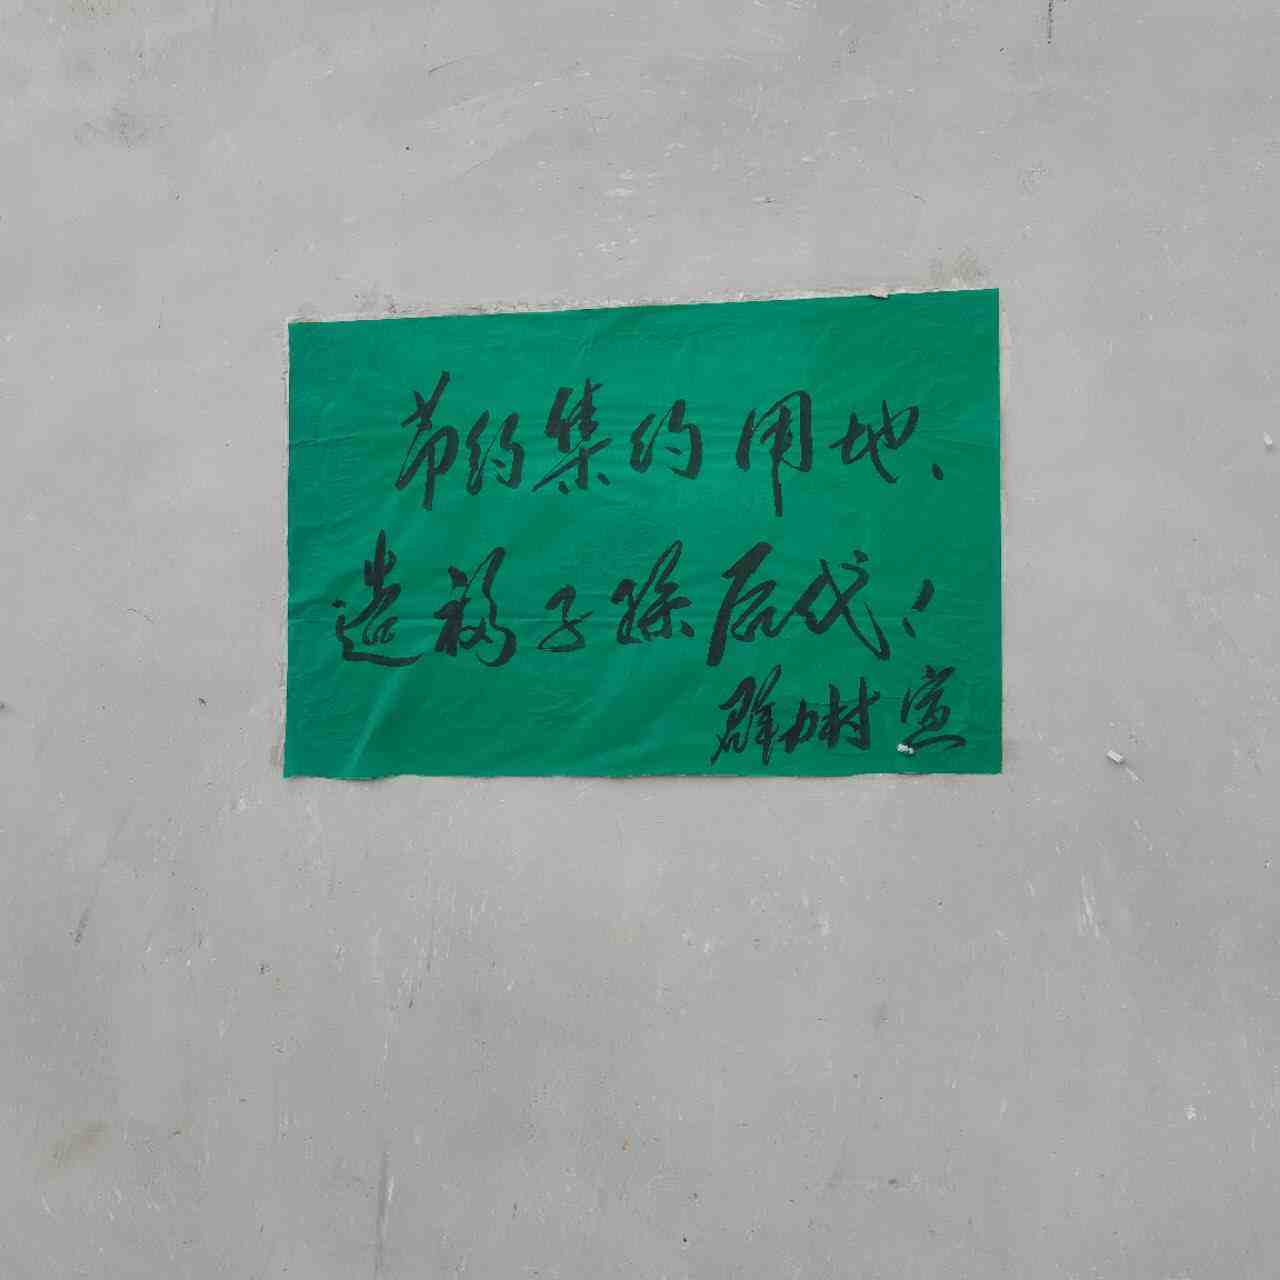 节约集约用地、
造福子孙后代！
群力村 宣